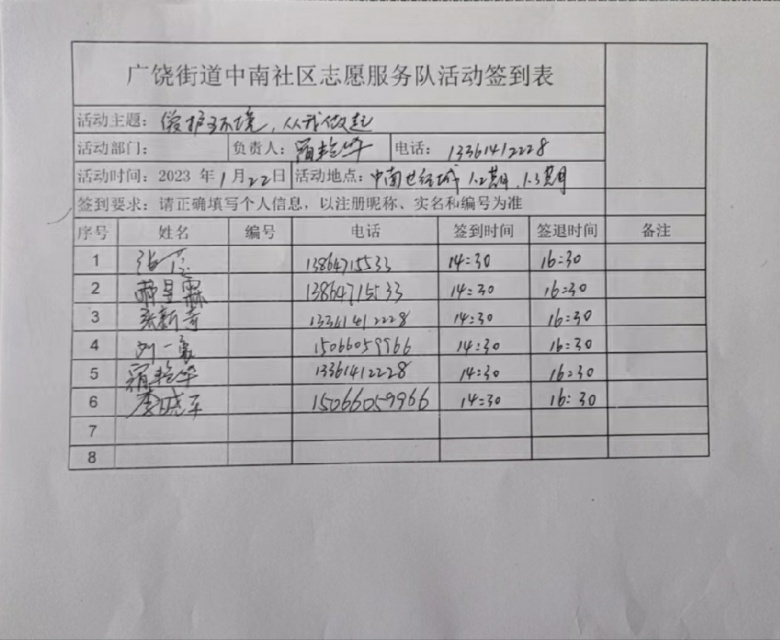 广饶街道中南社区志愿服务队活动签到表
活动主题：爱护环境，从我做起
活动部门： 负责人： 电话：13361412228
活动时间：2023 年 1 月 22 日 活动地点：中南世纪城 1.2期、1.3期
签到要求：请正确填写个人信息，以注册昵称、实名和编号为准
序号 姓名 编号 电话 签到时间 签退时间 备注
1 13864715533 14:30 16:30
2 13864715533 14:30 16:30
3 张新奇 13361412228 14:30 16:30
4 刘一 15066059966 14:30 16:30
5 13361412228 14:30 16:30
6 李晓军 15066059966 14:30 16:30
7
8